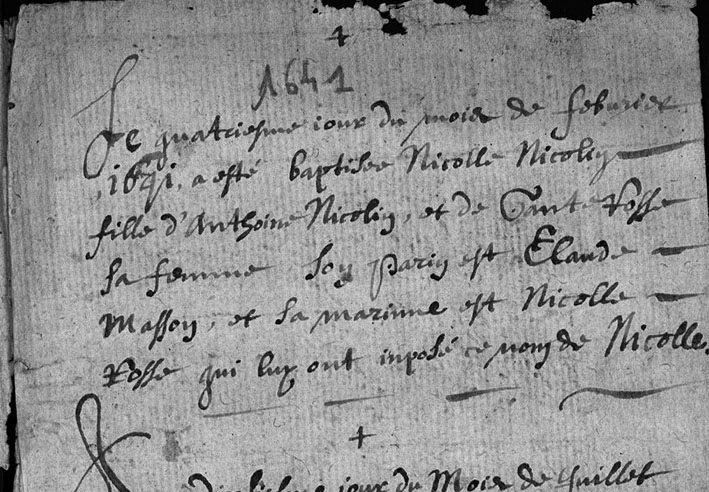 +
1641
Le quatriesme iour du mois de febvrier
1641, a esté baptisée Nicolle Nicolin
fille d'Anthoine Nicolin, et de Rosse
sa femme son parin est Claude
Masson, et sa marinne est Nicolle
Rosse qui luy ont inposé ce nom de Nicolle.
+
iour du Mois de Iuillet